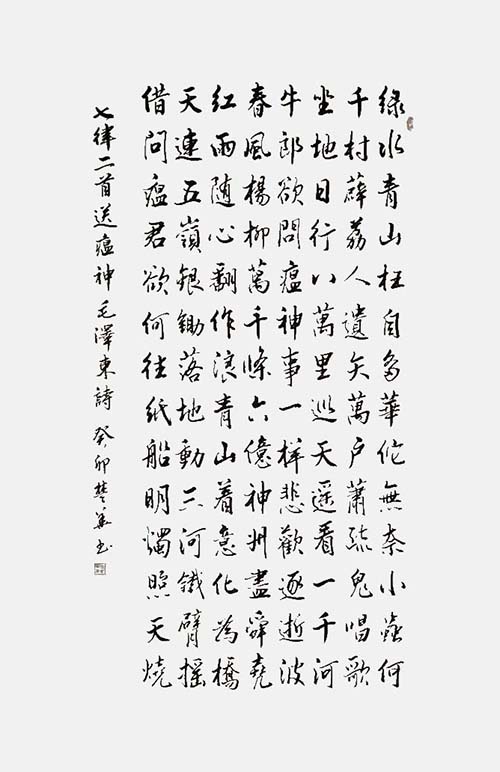 緑水青山枉自多華佗無奈小蟲何
千村薜荔人遺矢萬户蕭疏鬼唱歌
坐地日行八萬里巡天遥看一千河
牛郎欲問瘟神事一樣悲歡逐逝波
春風楊柳萬千條六億神州盡舜堯
紅雨随心翻作浪青山着意化為橋
天連五嶺銀鋤落地動三河鐵臂摇
借問瘟君欲何往紙船明燭照天燒
七律二首送瘟神毛澤東詩 癸卯楚书